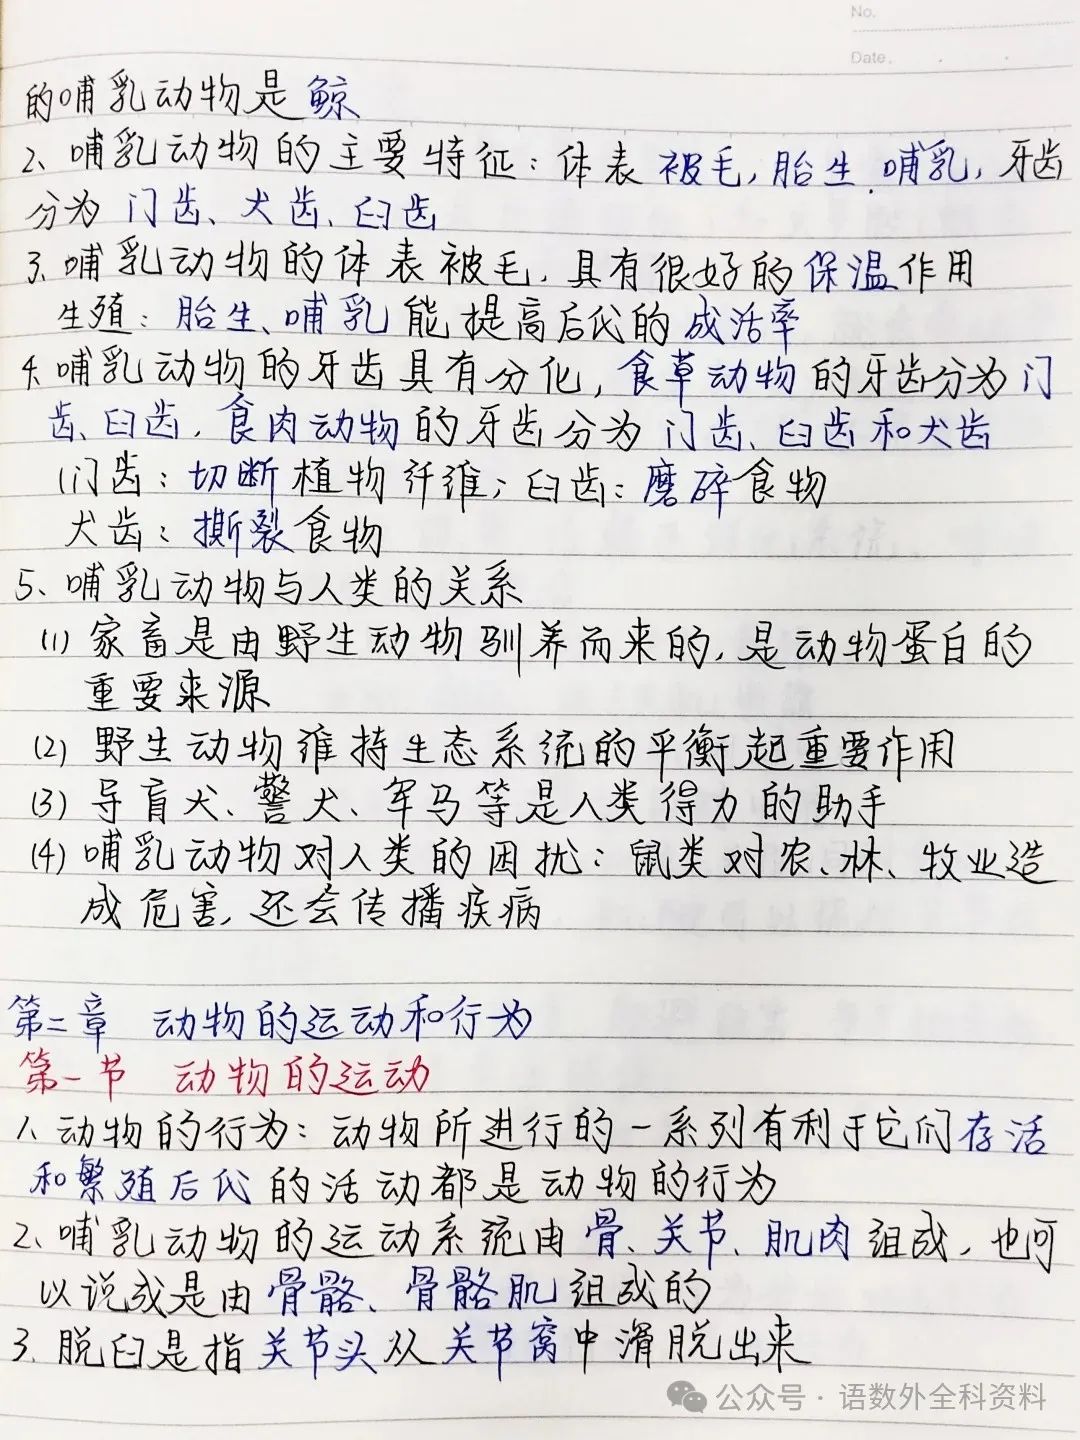 No.
Date.
的哺乳动物是鲸
2、哺乳动物的主要特征：体表被毛，胎生、哺乳，牙齿
分为门齿、犬齿、臼齿
3、哺乳动物的体表被毛，具有很好的保温作用
生殖：胎生、哺乳能提高后代的成活率
4、哺乳动物的牙齿具有分化，食草动物的牙齿分为门
齿、臼齿，食肉动物的牙齿分为门齿、臼齿和犬齿
门齿：切断植物纤维；臼齿：磨碎食物
犬齿：撕裂食物
5、哺乳动物与人类的关系
(1) 家畜是由野生动物驯养而来的，是动物蛋白的
重要来源
(2) 野生动物维持生态系统的平衡起重要作用
(3) 导盲犬、警犬、军马等是人类得力的助手
(4) 哺乳动物对人类的困扰：鼠类对农、林、牧业造
成危害，还会传播疾病
第二章 动物的运动和行为
第一节 动物的运动
1、动物的行为：动物所进行的一系列有利于它们存活
和繁殖后代的活动都是动物的行为
2、哺乳动物的运动系统由骨、关节、肌肉组成，也可
以说成是由骨骼、骨骼肌组成的
3、脱臼是指关节头从关节窝中滑脱出来
公众号·语数外全科资料